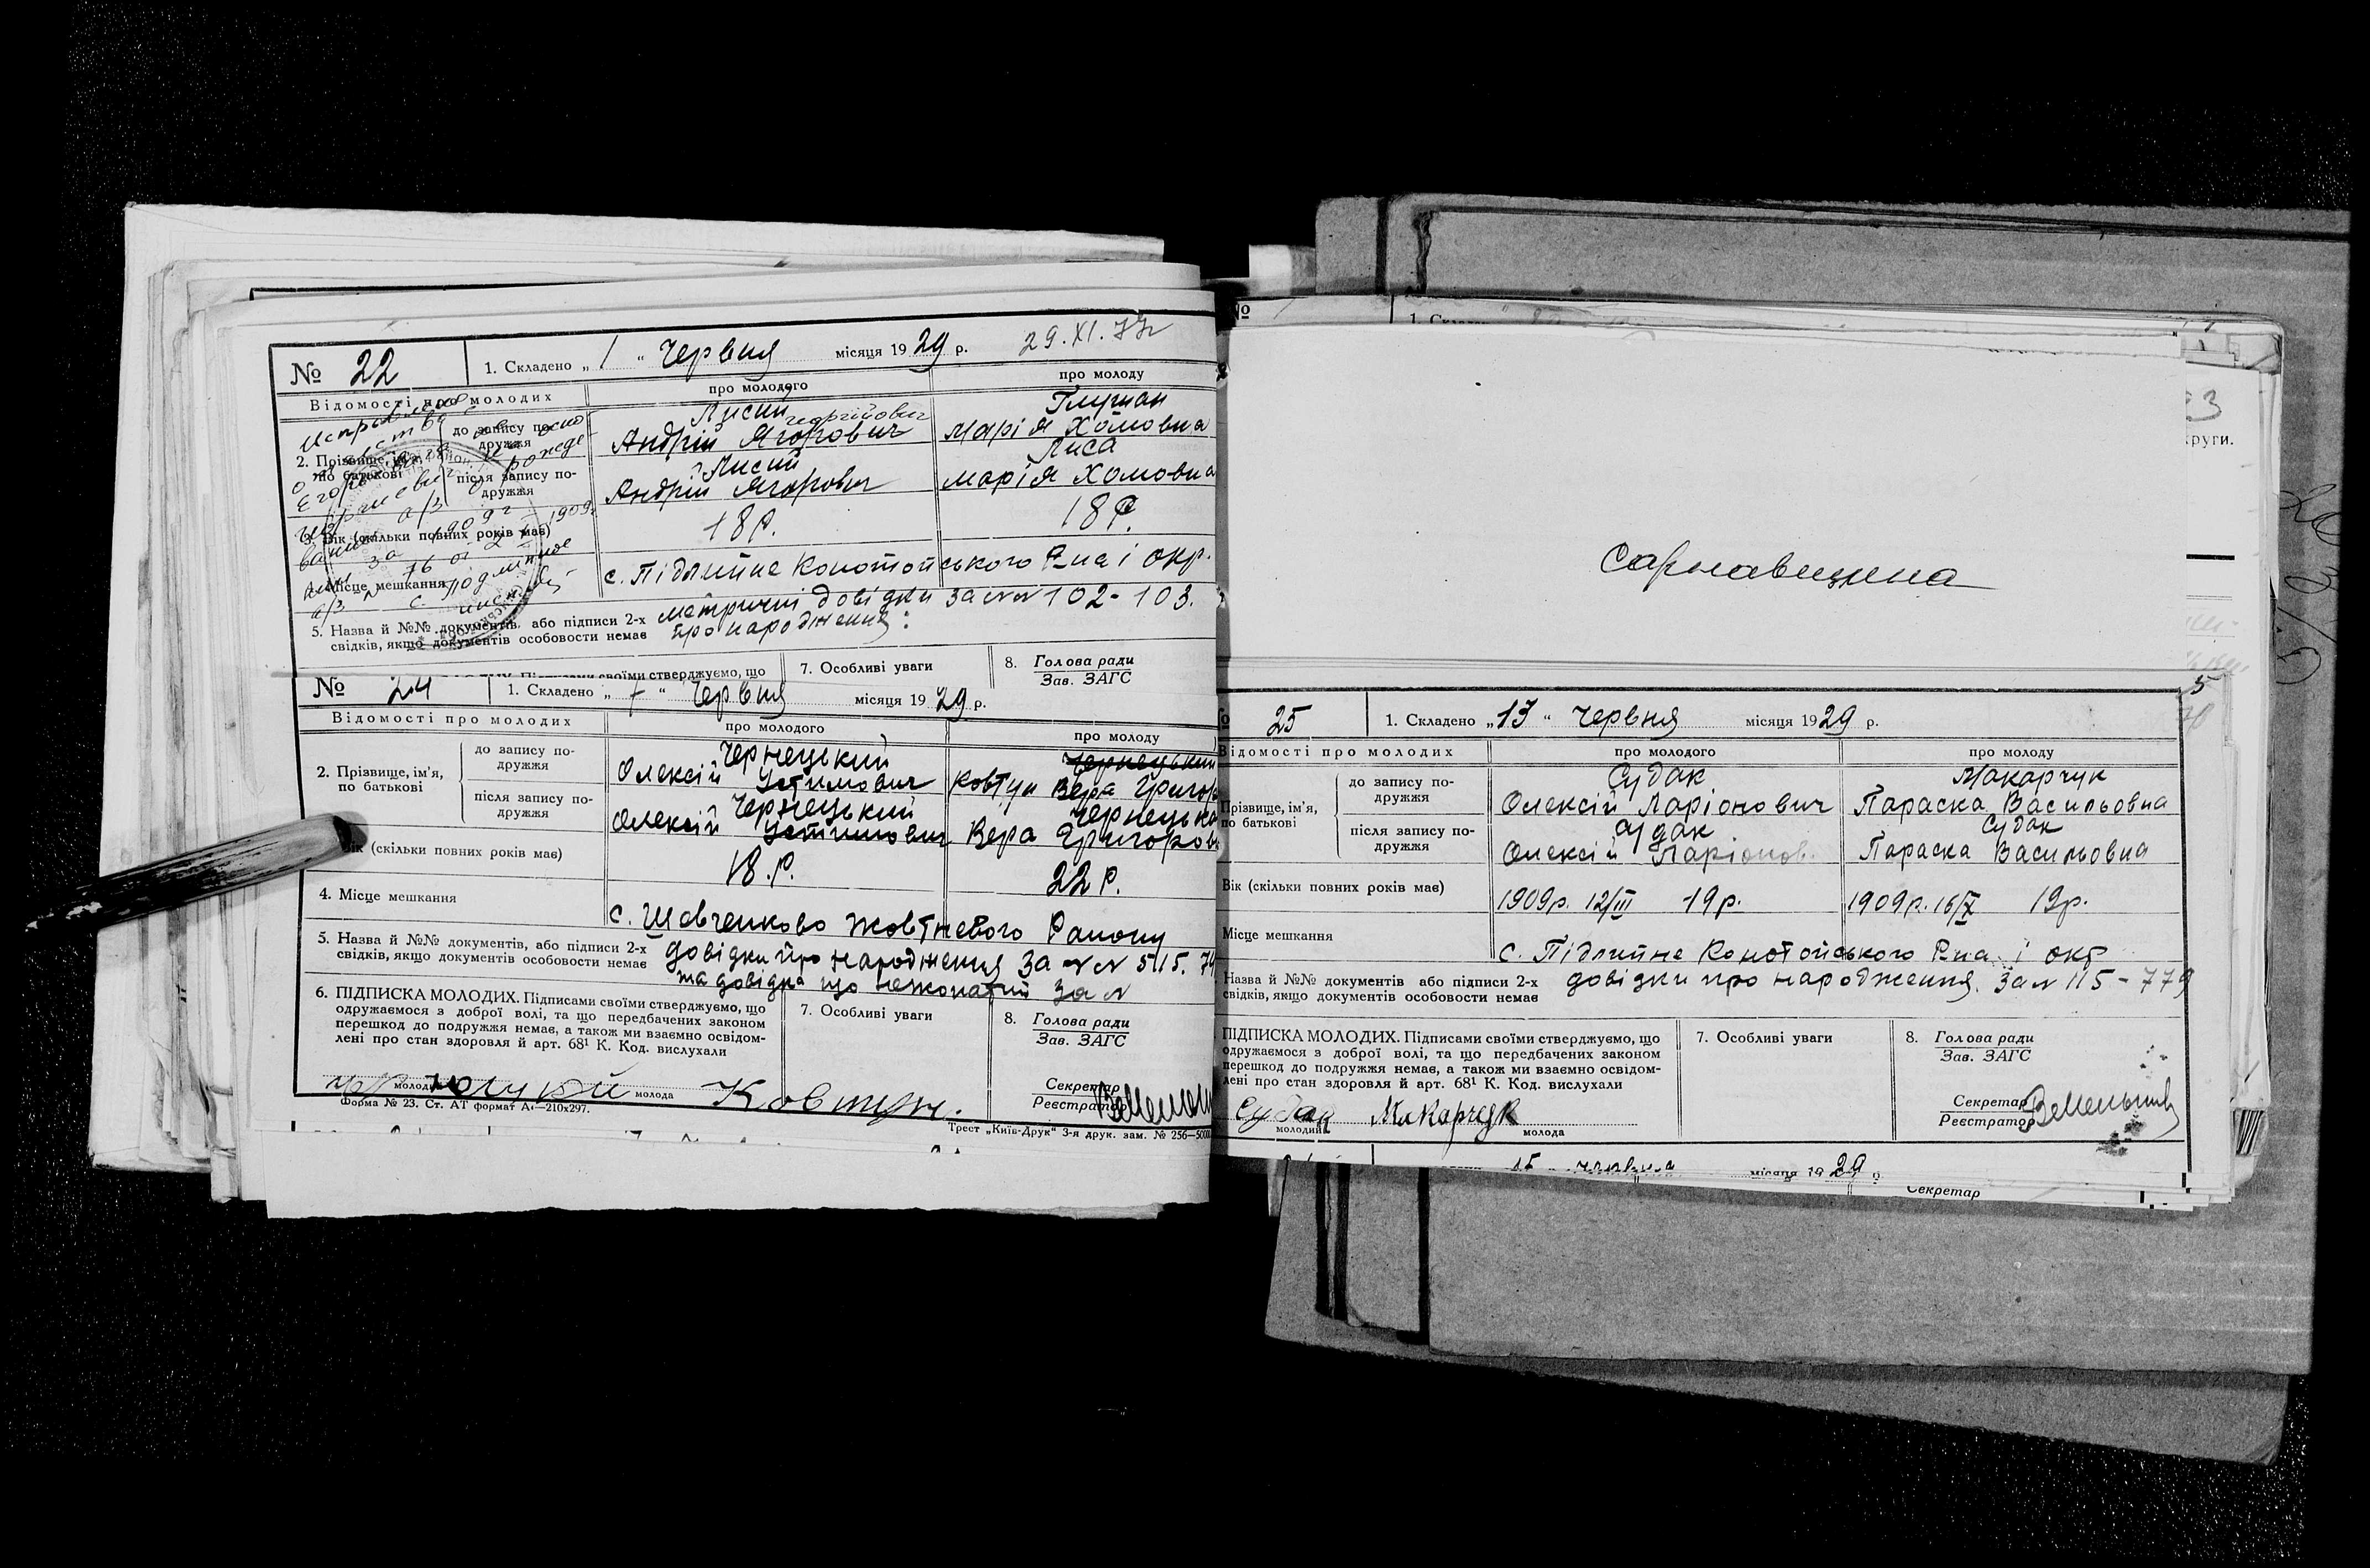 № 22
1. Складено „ 1 “ Червня місяця 1929 р.
29.XI.77г
Відомості про молодих
про молодого
про молоду
до запису по-
дружжя
Лисий
Георгійович
Андрій Ягорович
Глушан
Марія Хомовна
2. Прізвище, ім'я,
по батькові
після запису по-
дружжя
Лисий
Андрій Ягорович
Лиса
Марія Хомовна
3. Вік (скільки повних років має)
18 р.
18 р.
Місце мешкання
с. Підлипне Конотопського Р-на і окр.
5. Назва й №№ документів, або підписи 2-х
свідків, якщо документів особовости немає
метричні довідки за №№ 102-103.
про народження
своїми стверджуємо, що
7. Особливі уваги
8. Голова ради
Зав. ЗАГС
№ 24
1. Складено „ 7 “ Червня місяця 1929 р.
Відомості про молодих
про молодого
про молоду
2. Прізвище, ім'я,
по батькові
до запису по-
дружжя
Чернецький
Олексій Устимович
Чернецький
Ковтун Вера Григор
після запису по-
дружжя
Чернецький
Олексій Устимович
Чернецька
Вера Григоров
Вік (скільки повних років має)
18.р.
22 р.
4. Місце мешкання
с. Шевченково Жовтневого Району
5. Назва й №№ документів, або підписи 2-х
свідків, якщо документів особовости немає
довідки про народження за №№ 515. 74
та довідка що нежонатий за №
6. ПІДПИСКА МОЛОДИХ. Підписами своїми стверджуємо, що
одружаємося з доброї волі, та що передбачених законом
перешкод до подружжя немає, а також ми взаємно освідом-
лені про стан здоровля й арт. 68¹ К. Код. вислухали
7. Особливі уваги
8. Голова ради
Зав. ЗАГС
Секретар
Реєстратор
молода
Ковтун.
Форма № 23. Ст. АТ формат А₄—210х297.
Трест „Київ-Друк“ 3-я друк. зам. № 256—5000
Сарнавщина
25
1. Складено „13“ Червня місяця 1929 р.
Відомості про молодих
про молодого
про молоду
Прізвище, ім'я,
по батькові
до запису по-
дружжя
Судак
Олексій Ларіонович
Макарчук
Параска Васильовна
після запису по-
дружжя
Судак
Олексій Ларіонов.
Судак
Параска Васильовна
Вік (скільки повних років має)
1909р. 12/III 19р.
1909р. 16/X 19р.
Місце мешкання
с. Підлипне Конотопського Р-на і окр
Назва й №№ документів або підписи 2-х
свідків, якщо документів особовости немає
довідки про народження. за № 115-779
ПІДПИСКА МОЛОДИХ. Підписами своїми стверджуємо, що
одружаємося з доброї волі, та що передбачених законом
перешкод до подружжя немає, а також ми взаємно освідом-
лені про стан здоровля й арт. 68¹ К. Код. вислухали
7. Особливі уваги
8. Голова ради
Зав. ЗАГС
Секретар
Реєстратор
Судак Макарчук
молодий
молода
15 червня місяця 1929 р
Секретар